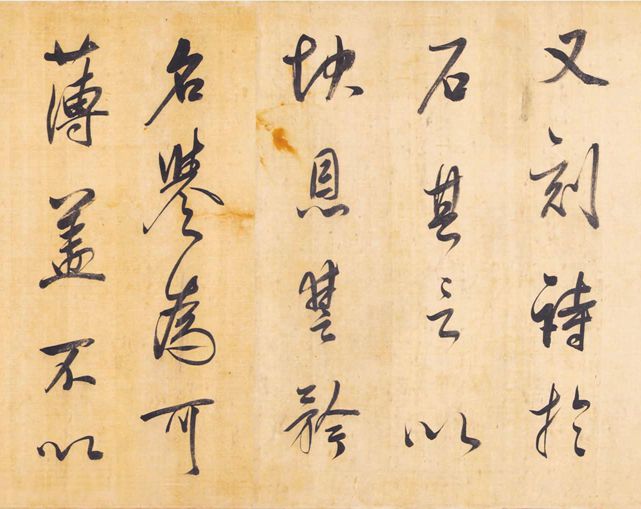 又刻詩於
石其言以
快恩讐矜
名譽為可
薄盖不以